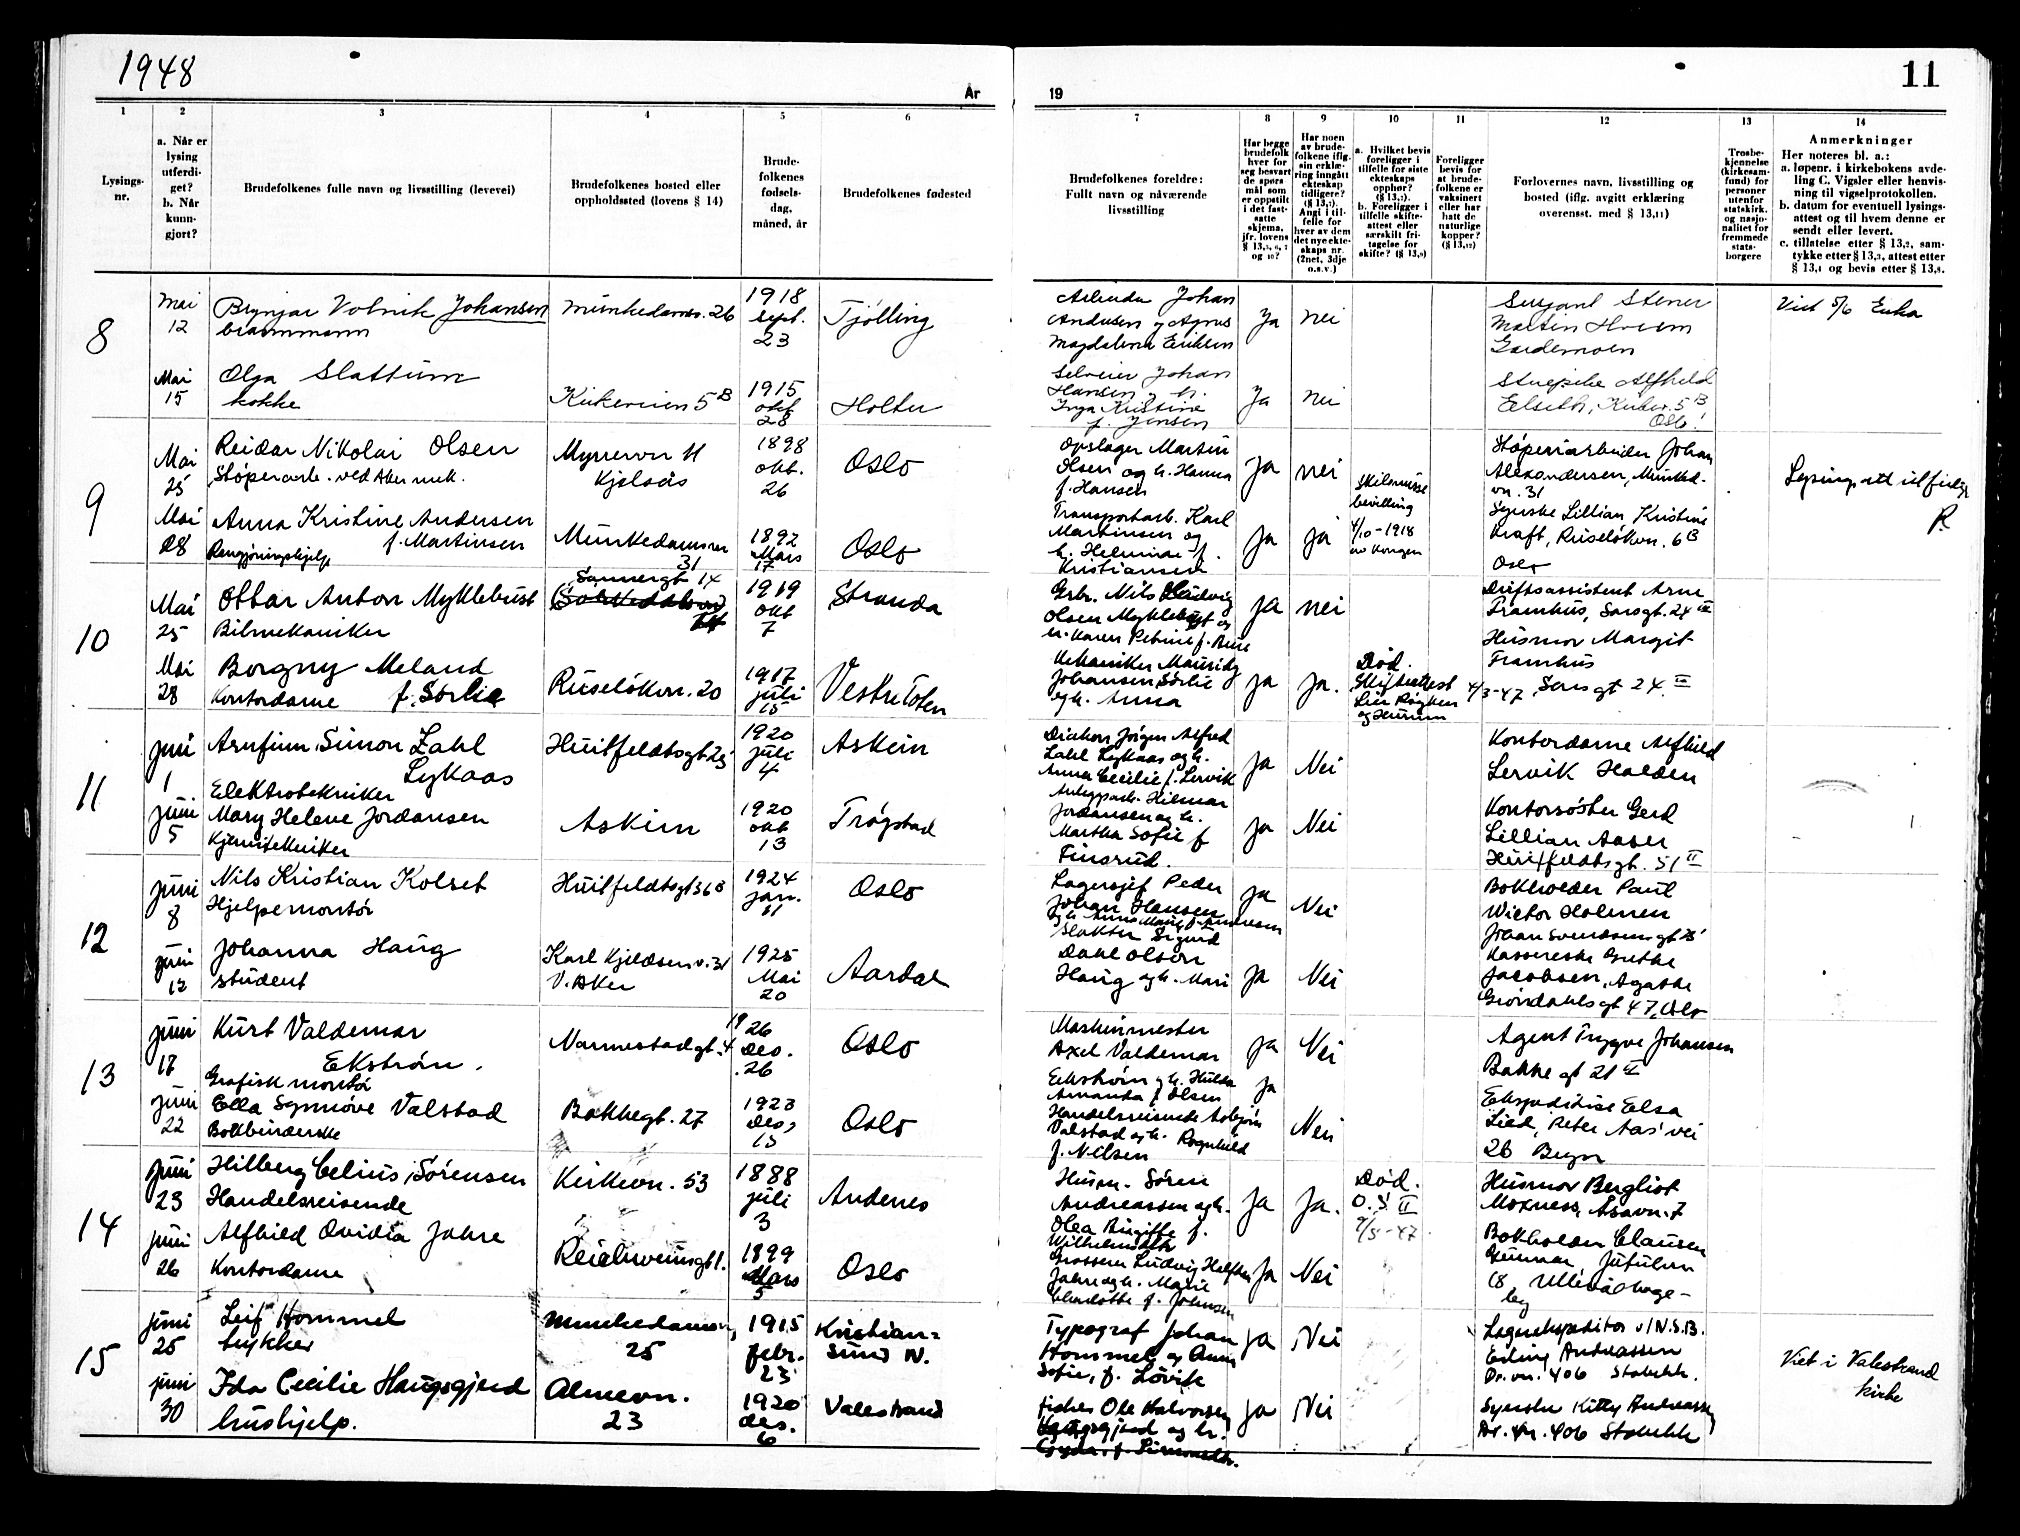 1948
År
19
11
1
2
3
4
5
6
7
8
9
10
11
12
13
14
Lysings-
nr.
a. Når er
lysing
utferdi-
get?
b. Når
kunn-
gjort?
Brudefolkenes fulle navn og livsstilling (levevei)
Brudefolkenes bosted eller
oppholdssted (lovens § 14)
Brude-
folkenes
fødsels-
dag,
måned, år
Brudefolkenes fødested
Brudefolkenes foreldre:
Fullt navn og nåværende
livsstilling
Har begge
brudefolk
hver for
seg besvart
de spørs-
mål som
er oppstilt
i det fast-
satte
skjema,
jfr. lovens
og 10?
Har noen
av brude-
folkene iflg.
sin erklæ-
ring inngått
ekteskap
tidligere?
Angi i til-
felle for
hver av dem
det nye ekte-
skaps nr.
(2net, 3dje
o.s.v.)
a. Hvilket bevis
foreligger i
tilfelle for siste
ekteskaps
opphør?
b. Foreligger i
tilfelle skifte-
attest eller
særskilt fri-
tagelse for
skifte? (§ 13,9)
Foreligger
bevis for
at brude-
folkene er
vaksinert
eller har
hatt de
naturlige
kopper?
Forlovernes navn, livsstilling og
bosted (iflg. avgitt erklæring
overensst. med § 13,11)
Trosbe-
kjennelse
(kirkesam-
fund) for
personer
utenfor
statskirk.
og nasjo-
nalitet for
fremmede
stats-
borgere
Anmerkninger
Her noteres bl. a.:
a. løpenr. i kirkebokens avde-
ling C. Vigsler eller henvis-
ning til vigselprotokollen.
b. datum for eventuell lysings-
attest og til hvem denne er
sendt eller levert.
c. tillatelse etter § 13,2, sam-
tykke etter § 13,3, attest etter
§ 13,4 og bevis etter § 13,8.
8
Mai
12
Brynjar Volrik Johansen
brannmann
Munkedamsv. 26
1918
sept.
23
Tjølling
Johan
Andersen og Agnes
Magdalena Eriksen
Ja
nei
Sersjant Stener
Martin
Gardemoen
Viet 5/6
Mai
15
Olga Slattum
kokke
Kirkeveien 5 B
1915
okt
28
Holter
Johan
Hansen og h.
Inga Kristine
f. Jensen
Ja
nei
Alfhild
5 B
Oslo
9
Mai
25
Reidar Nikolai Olsen
Støperiarb. ved Aker mek.
Myrervn 11
Kjelsås
1898
okt.
26
Oslo
Opslager Martin
Olsen og h. Hanna
f. Hansen
ja
nei
Støperiarbeider Johan
Alexandersen, Munked.
vn. 31
Mai
28
Anna Kristine Andersen
f. Martinsen
Rengjøringshjelp
Munkedamsvn
31
1892
Mars
17
Oslo
Transportarb. Karl
Martinsen og
h. Helmine f.
Kristiansen
ja
ja
Skilsmisse
bevilling
4/10-1918
av Kongen
Syerske Lillian Kristine
Kraft, Ruseløkvn. 6 B
Oslo
10
Mai
25
Ottar Anton Myklebust
Bilmekaniker
Sannergt 14
1919
okt
7
Stranda
Grbr. Nils Ludvig
Olsen Myklebust og
h. Karen Petrine f.
ja
nei
Driftsassistent Arne
Framhus, Sarsgt. 24 III
Mai
28
Borgny Meland
Kontordame f. Sørlie
Ruseløkvn. 20
1917
juli
15
Vestre Toten
Mekaniker
Johansen Sørlie
og h. Anna
ja
ja.
Død.
Skifteattest
Lier Røyken
og Hurum
4/3-47
Husmor Margit
Framhus
Sarsgt 24. III
11
juni
1
Arnfinn Simon Zahl
Lykaas
Elektrotekniker
Huitfeldtsgt 25
1920
juli
4
Askim
Direktør Jørgen Alfred
Zahl Lykaas og h.
Anna Cecilie f. Lervik
ja
Nei
Kontordame Alfhild
Lervik Halden
juni
5
Mary Helene Jordansen
Kjemitekniker
Askim
1920
okt
13
Trøgstad
Anleggsarb. Hilmar
Jordansen og h.
Martha Sofie f
Finsrud.
ja
Nei
Kontorsøster Gerd
Lillian Aaser
Huitfeldtsgt. 51 II
12
juni
8
Nils Kristian Kolset
Hjelpemontør
Huitfeldtsgt 36 B
1924
jan.
11
Oslo
Lagersjef Peder
Johan Hansen
og h. Anna f. Andresen
ja
Nei
Bokholder Paul
Wictor Holmen
Johan Svendsensgt
juni
12
Johanna Haug
student
Karl Kjeldsens v. 31
V. Aker
1925
Mai
20
Aardal
Slakter Sigurd
Dahl Olsen
Haug og h. Mari
ja
Nei
Kassererske Grethe
Jacobsen, Agathe
Grøndahlsgt 47, Oslo
13
juni
17
Kurt Valdemar
Ekstrøm.
Grafisk montør
Nannestadgt. 4
1926
Des.
26
Oslo
Maskinmester
Axel Valdemar
Ekstrøm og h. Hulda
Amanda f Olsen
ja
Nei
Agent Trygve Johansen
Bakkegt 21 II
juni
22
Ella Synnøve Valstad
Bokbinderske
Bakkegt. 27
1923
Des,
13
Oslo
Handelsreisende Asbjørn
Valstad og h. Ragnhild
f. Nilsen
ja
Nei
Ekspeditrise Elsa
Lied, Peter Aas' vei
26 Bryn
14
juni
23
Hilberg Celius Sørensen
Handelsreisende
Kirkevn. 53
1888
juli
3
Andenes
Husm. Søren
Andreassen og h.
Olea Birgitte f.
Wilhelmsdtr
Ja
Ja.
Død.
O.S. II
9/5-47.
Husmor Bergliot
Moxness, Åsavn. 7
juni
26
Alfhild Ovidia Jahre
Kontordame
Reichweinsgt 1.
1899
Mars
5
Oslo
Grosserer Ludvig
Jahre og h. Marie
Charlotte f. Johnsen
Ja
Nei
Bokholder Clausen
Gunnar, Jutulvn
18 Ullevål hage-
by
15
juni
25
Leif Hommel
trykker
Munkedamsvn,
25
1915
febr.
23
Kristian=
sund N.
Typograf Johan
Hommel og Anna
Sofie, f. Løvik
ja
Nei
Lagerekspeditør v/N.S.B.
Erling Andreassen
Dr. vn. 406 Stabekk.
Viet i Valestrand
kirke
juni
30
Ida Cecilie Haugsgjerd
hushjelp.
Almevn.
23
1920
des.
6
Valestrand
Fisker Ole Halvorsen
Haugsgjerd og h.
Gyda f. Simonsdtr.
ja
Nei
Syerske Kitty Andreassen
Dr. vn. 406 Stabekk